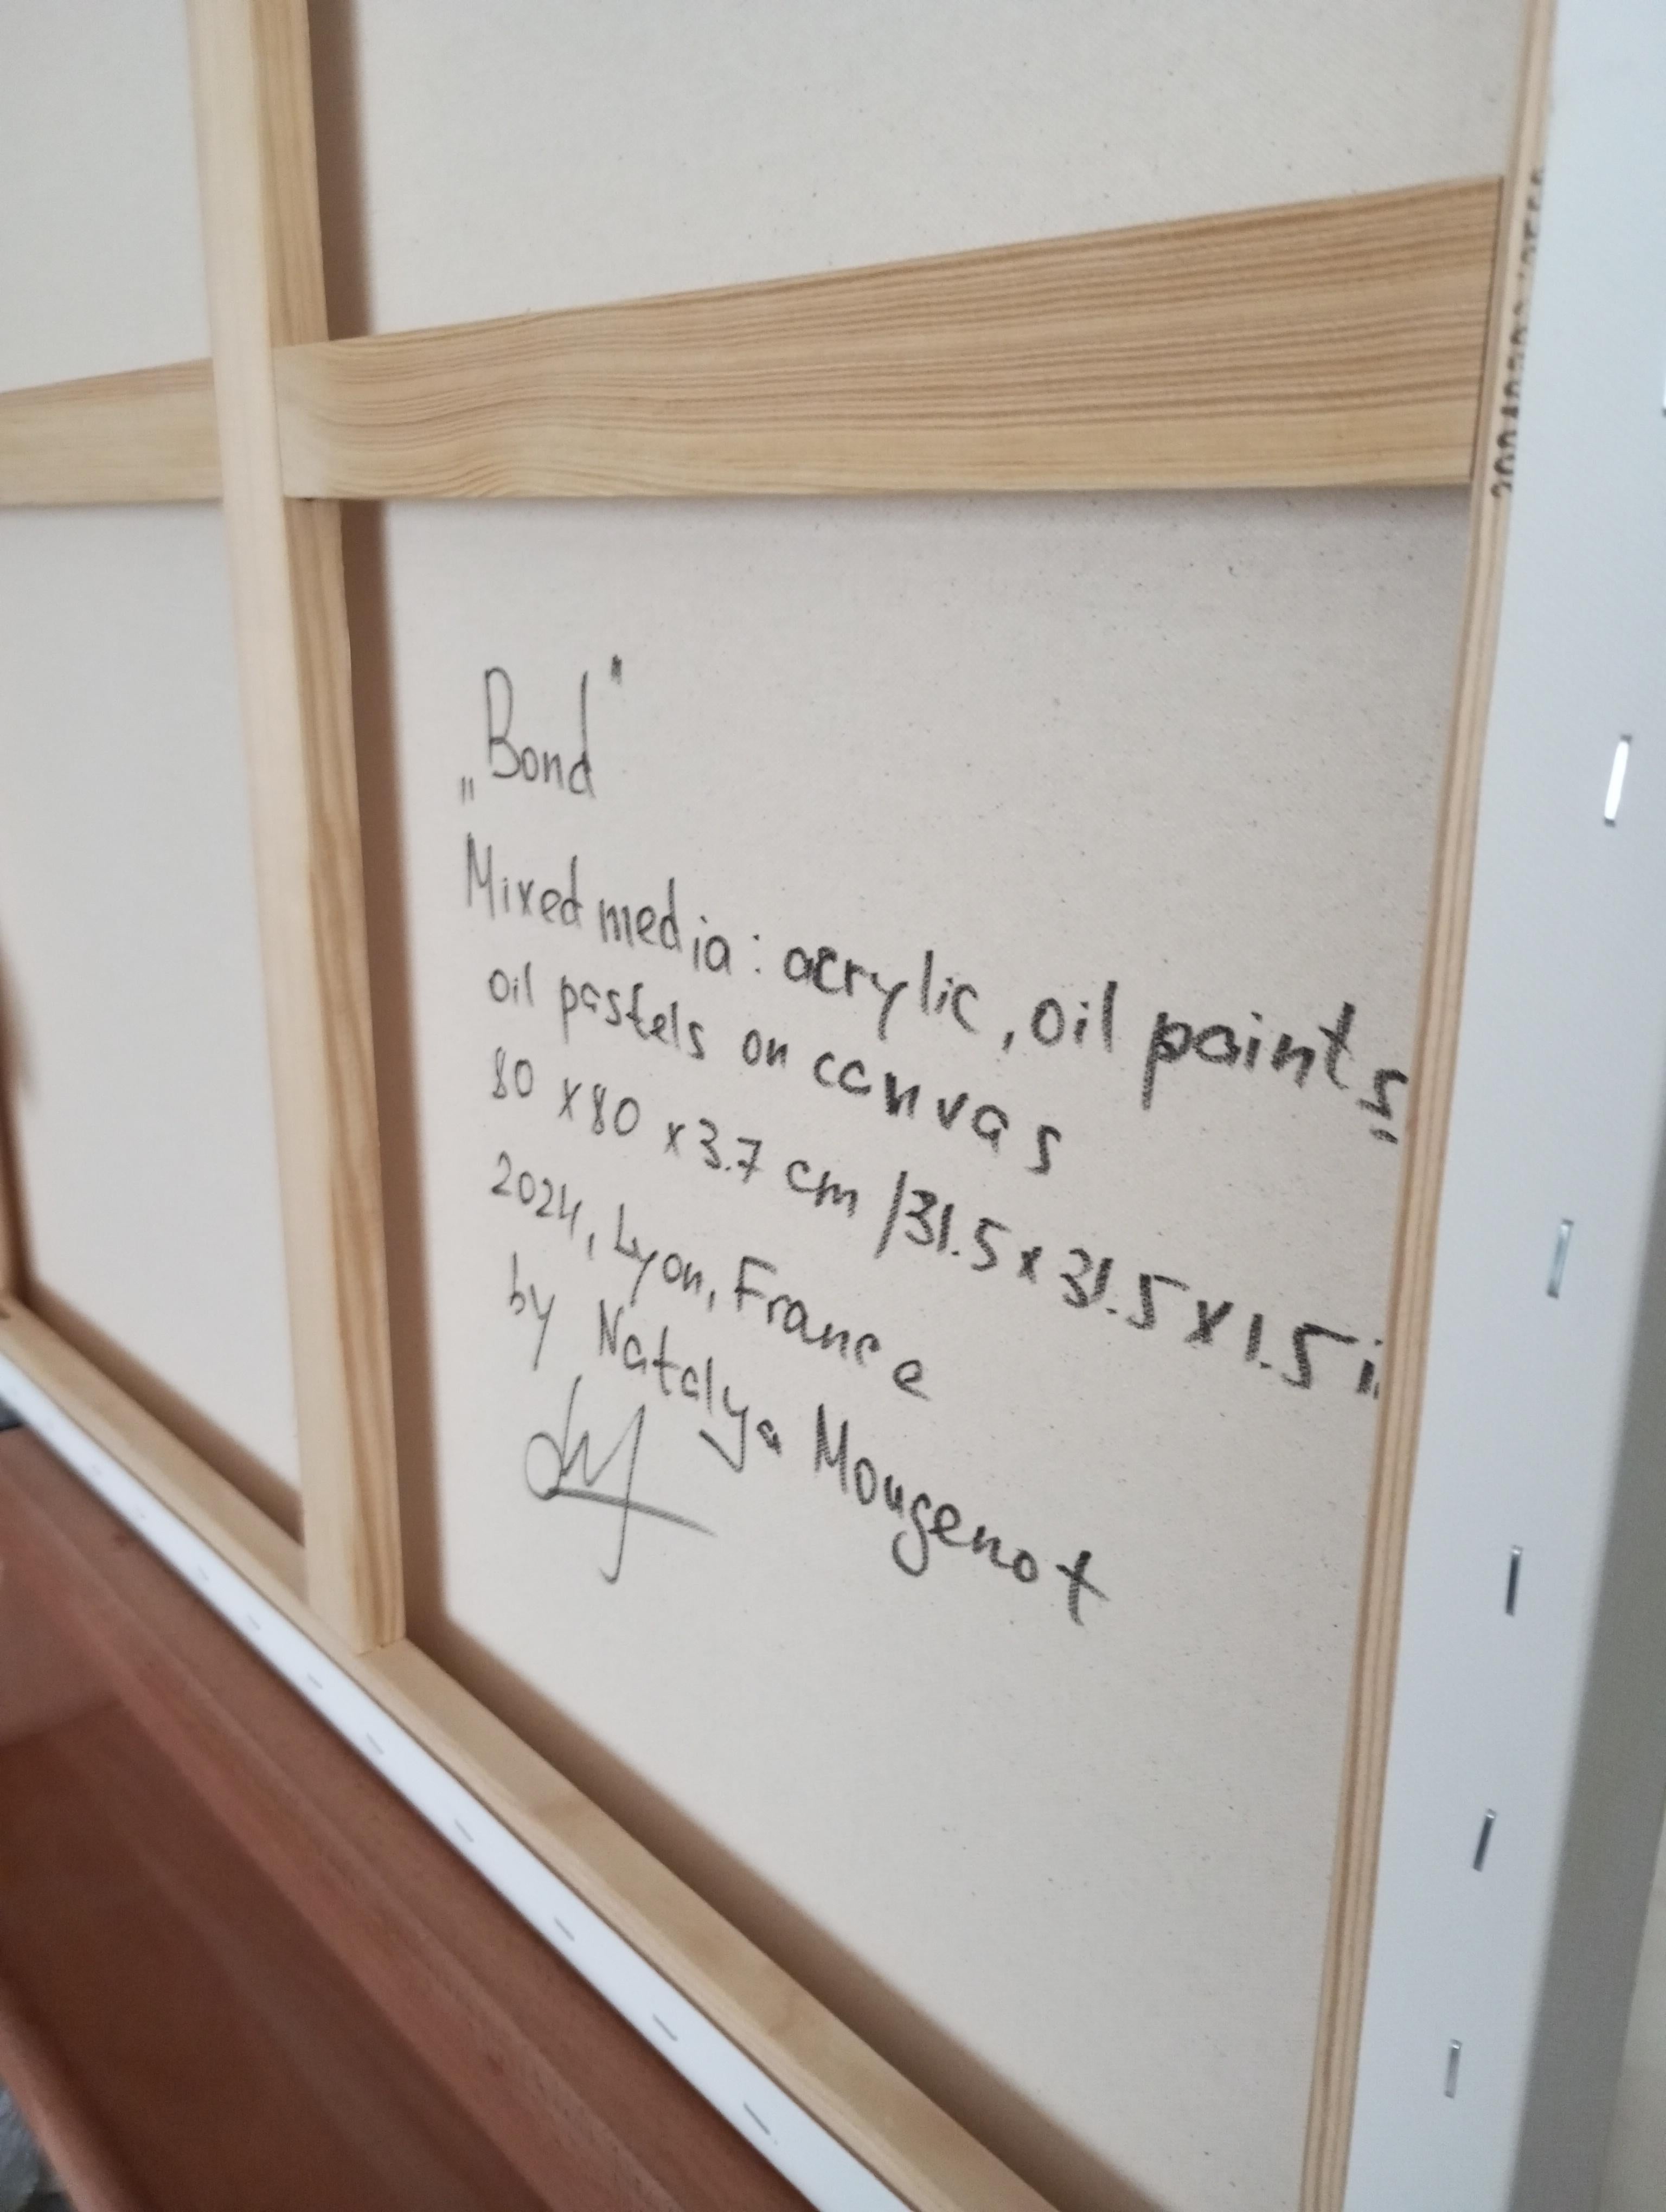 „Bond"
Mixed media: acrylic, oil paints,
oil pastels on canvas
80 x 80 x 3.7 cm / 31.5 x 31.5 x 1.5 i
2024, Lyon, France
by Natalya Mougenot